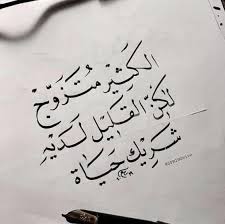 الكَثِيْر مُتَزَوِّجْ
لكِنَّ القَلِيْل لَدَيْهِ
شَرِيْك حَيَاة